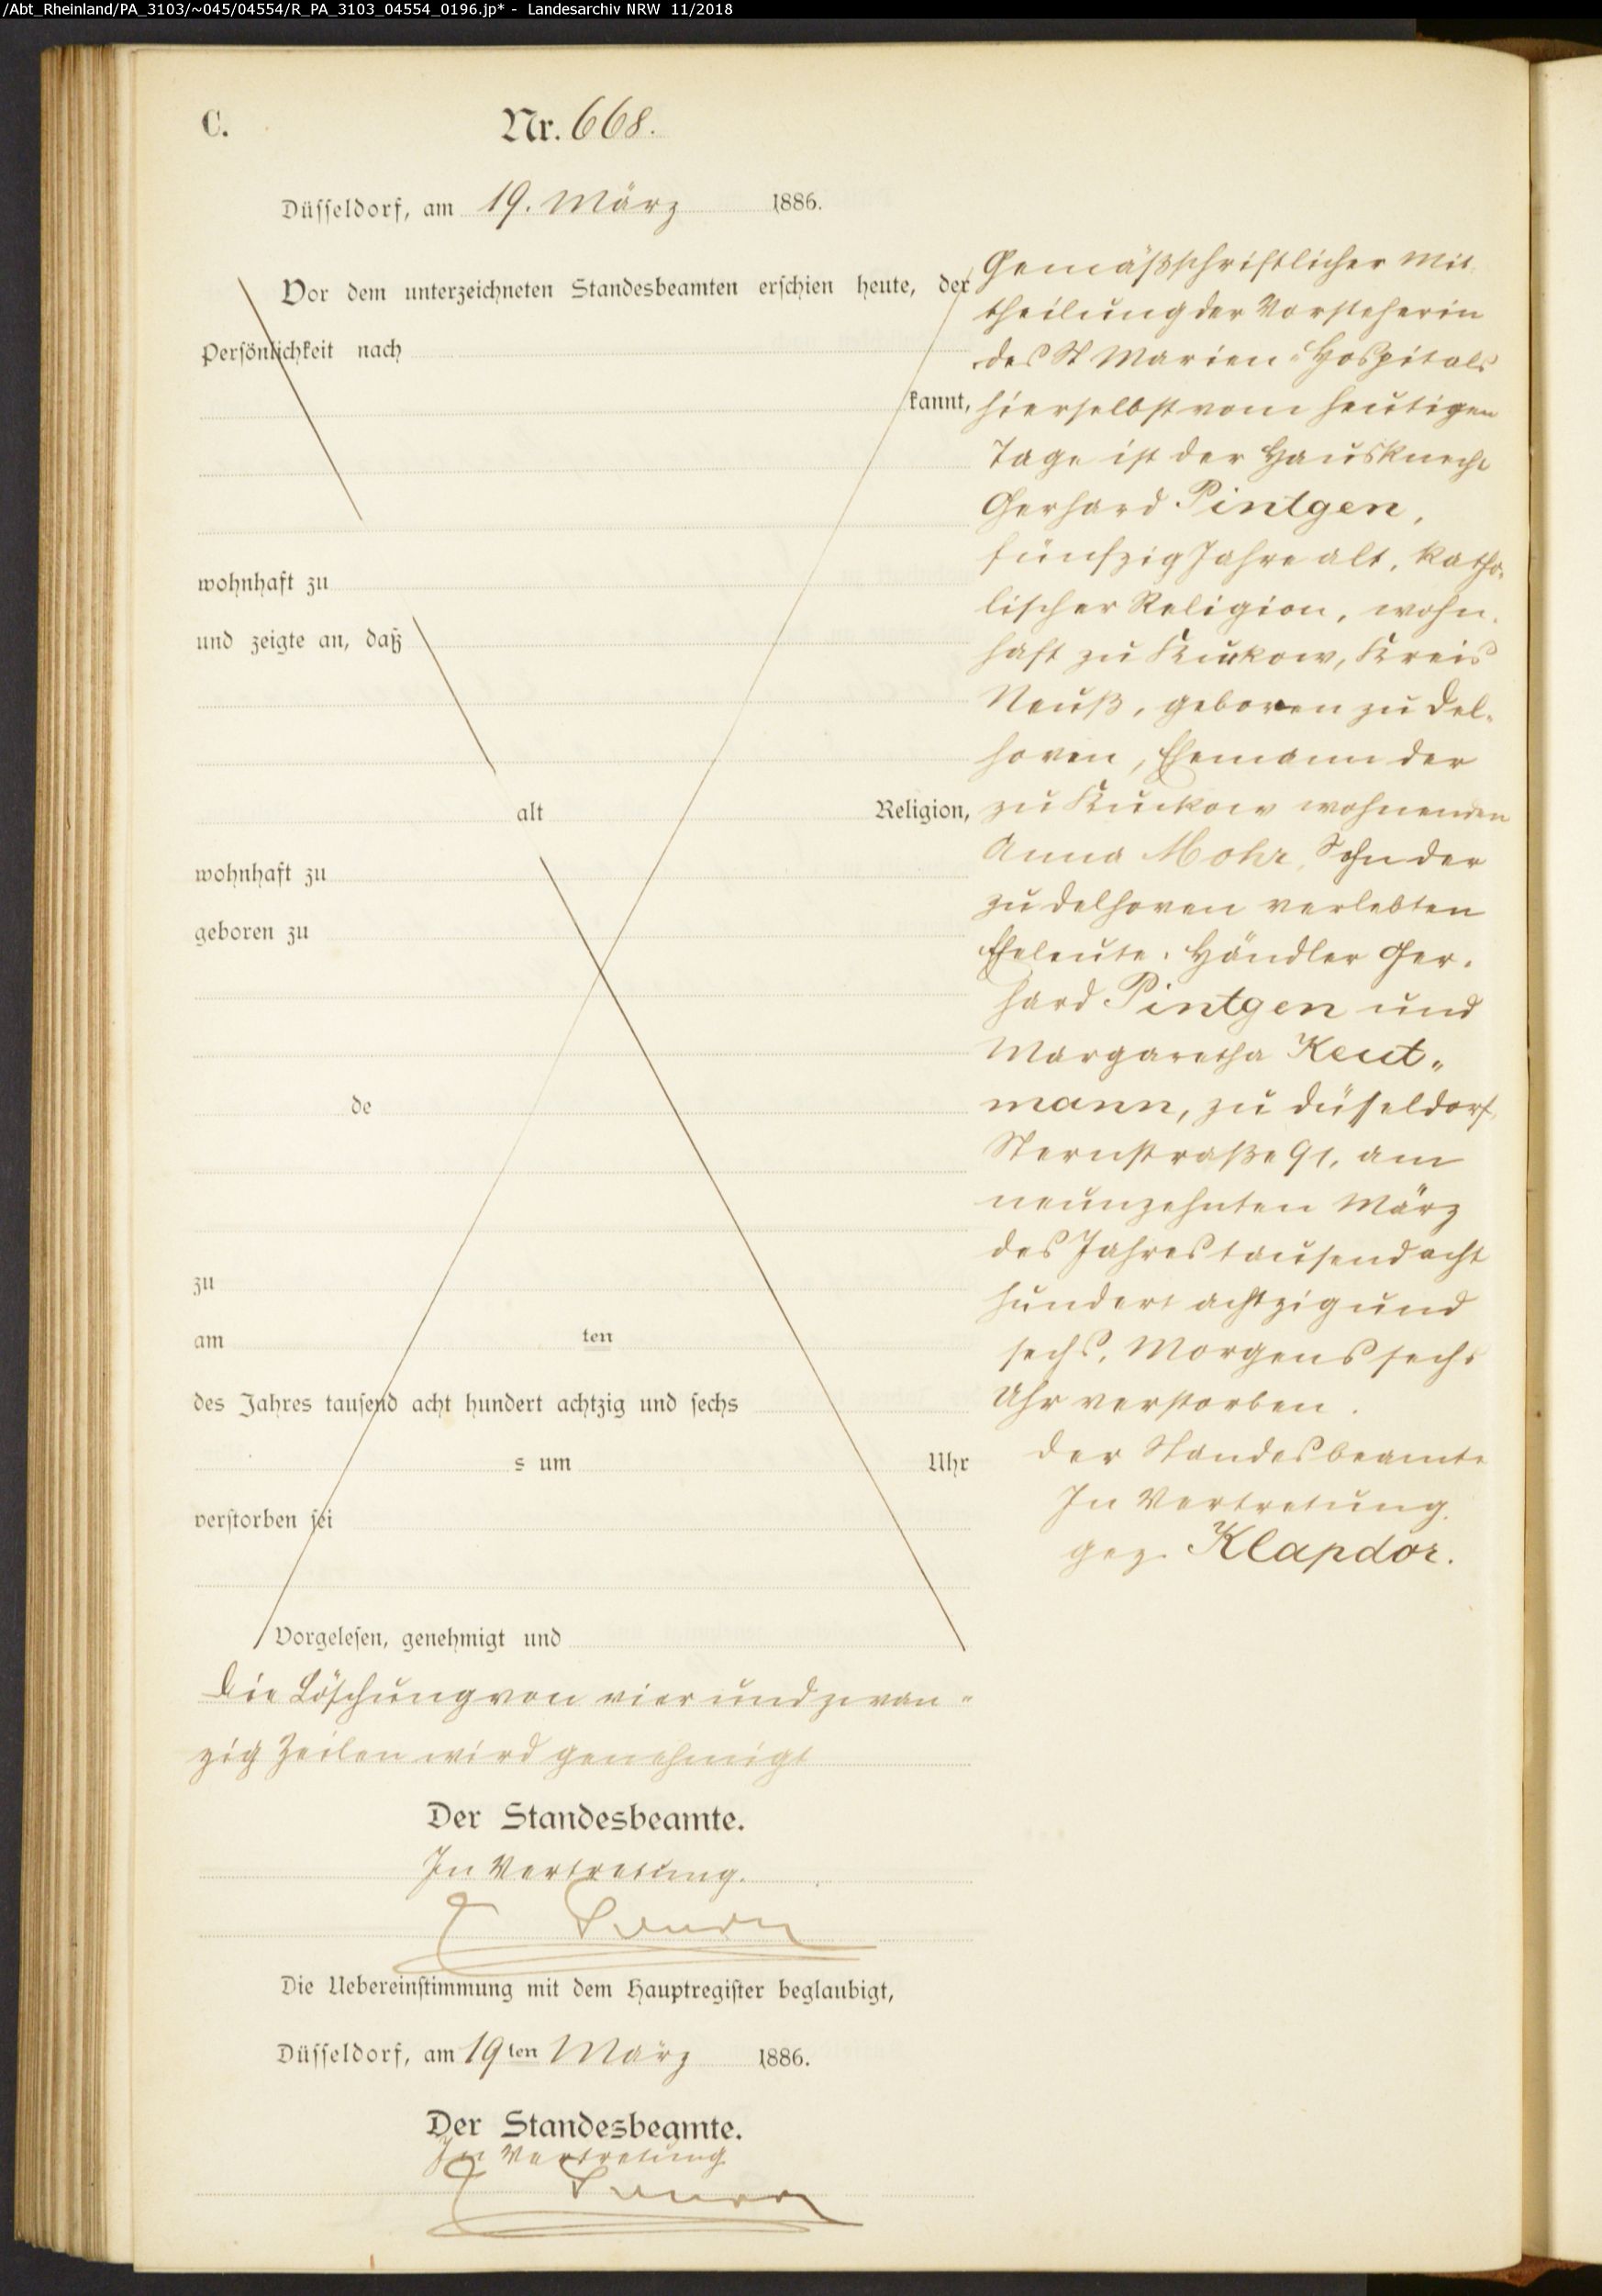 /Abt_Rheinland/PA_3103/~045/04554/R_PA_3103_04554_0196.jp* - Landesarchiv NRW 11/2018
C.
Nr. 668.
Düsseldorf, am 19. März 1886.
Vor dem unterzeichneten Standesbeamten erschien heute, der
Persönlichkeit nach
kannt,
wohnhaft zu
und zeigte an, daß
alt Religion,
wohnhaft zu
geboren zu
de
zu
am ten
des Jahres tausend acht hundert achtzig und sechs
s um Uhr
verstorben sei
Vorgelesen, genehmigt und
Gemäß schriftlicher Mit-
theilung der Vorsteherin
des St Marien-Hospitals
hierselbst vom heutigen
Tage ist der Hausknecht
Gerhard Pintgen,
fünfzig Jahre alt, katho-
lischer Religion, wohn-
haft zu Kuckow, Kreis
Neuß, geboren zu Del-
hoven, Ehemann der
zu Kuckow wohnenden
Anna Mohr, Sohn der
zu Delhoven verlebten
Eheleute: Händler Ger-
hard Pintgen und
Margaretha Keut-
mann, zu Düsseldorf,
Sternstraße 91, am
neunzehnten März
des Jahres tausend acht
hundert achtzig und
sechs, Morgens sechs
Uhr verstorben.
Der Standesbeamte
In Vertretung.
gez. Klapdor.
Die Löschung von vier und zwan-
zig Zeilen wird genehmigt
Der Standesbeamte.
In Vertretung.
Die Uebereinstimmung mit dem Hauptregister beglaubigt,
Düsseldorf, am 19ten März 1886.
Der Standesbeamte.
In Vertretung